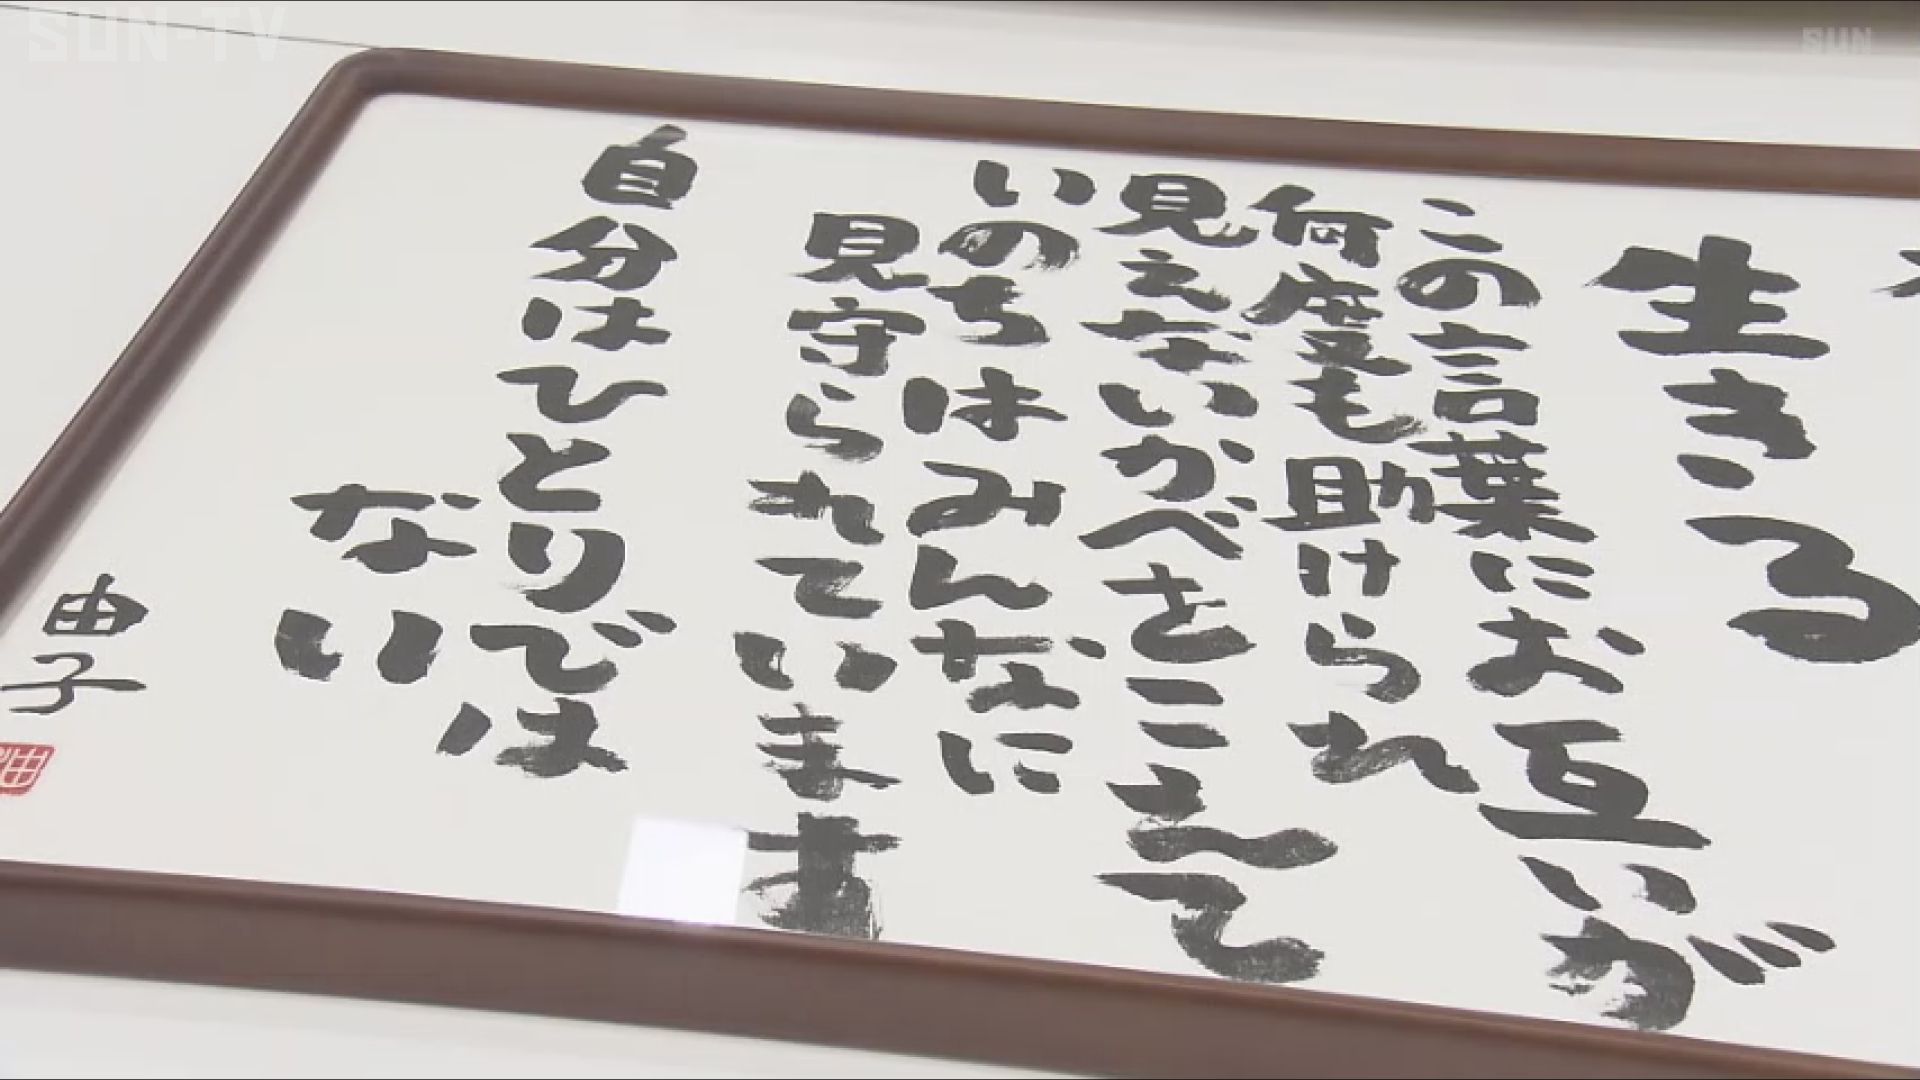 SUN-TV
SUN
生きる
この言葉にお互いが
何度も助けられ
見えないかべをこえて
いのちはみんなに
見守られています
自分はひとりでは
ない
由子